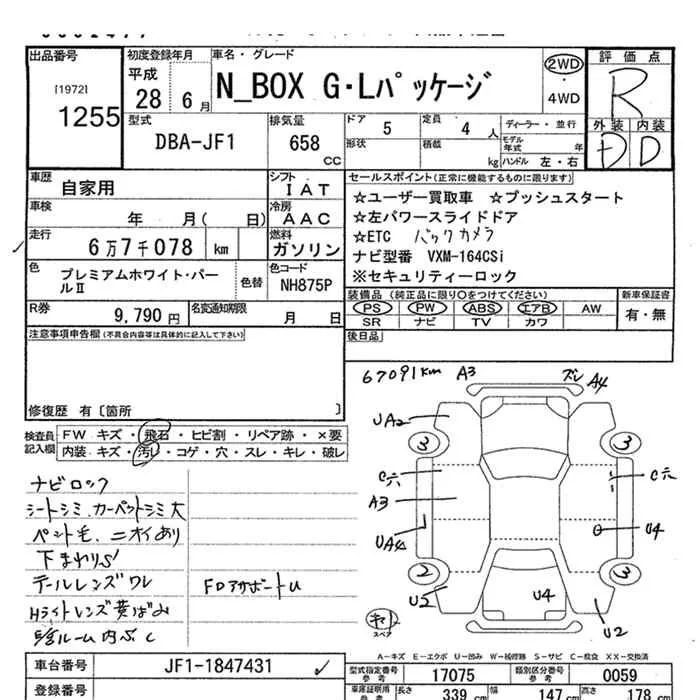 出品番号 初度登録年月 車名・グレード 評価点
[1972] 1255 平成 28年 6月 N_BOX G・Lパッケージ 2WD・4WD R
型式 DBA-JF1 排気量 658 CC ドア 5 定員 4 人 ディーラー・並行 外装 内装
形状 積載 kg モデル年式 年 ハンドル 左・右 +D D
車歴 自家用 シフト IAT セールスポイント(正常に機能するものに限ります)
車検 年 月( 日) 冷房 AAC ☆ユーザー買取車 ☆プッシュスタート
☆左パワースライドドア
走行 6万7千078 km 燃料 ガソリン ☆ETC バックカメラ
ナビ型番 VXM-164CSi
色 プレミアムホワイト・パールII 色替 色コード NH875P ※セキュリティーロック
R券 9,790円 名変通知期限 月 日 装備品(純正品に限り○をつけてください) 新車保証書
PS PW ABS エアB AW 有・無
SR ナビ TV カワ
注意事項申告欄(不具合内容等は具体的に記入して下さい) 後日品
修復歴 有〔箇所 〕
検査員記入欄 FW キズ・飛石・ヒビ割・リペア跡・×要
内装 キズ・汚レ・コゲ・穴・スレ・キレ・破レ
67091km A3 ズレ A4
UA2
3 3
C穴 C穴
A3
UA4 U4
2 3
U2 U4 U2
キ スペア
ナビロック
シートシミ、カーペットシミ大
ペント毛、ニオイあり
下まわりS
テールレンズワレ FDアウボートU
Hライトレンズ黄ばみ
ルーム内
A-キズ E-エクボ U-凹み W-補修跡 S-サビ C-腐食 XX-交換済
車台番号 JF1-1847431 型式指定番号 参考 17075 類別区分番号 参考 0059
登録番号 車庫証明用 参考 長さ 339 cm 幅 147 cm 高さ 178 cm